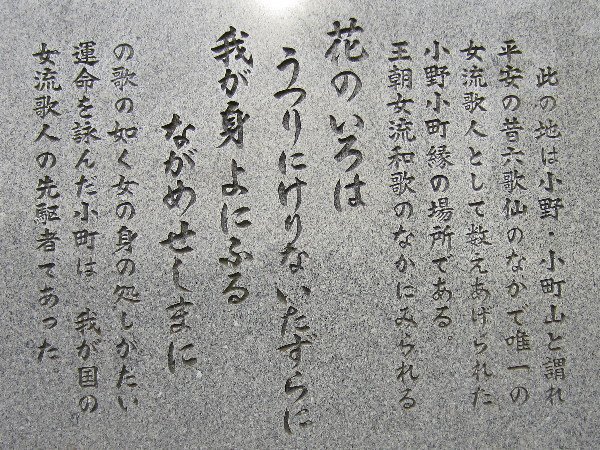 此の地は小野・小町山と謂れ
平安の昔六歌仙のなかで唯一の
女流歌人として数えあげられた
小野小町縁の場所である。
王朝女流和歌のなかにみられる
花のいろは
うつりにけりないたずらに
我が身よにふる
ながめせしまに
の歌の如く女の身の処しがたい
運命を詠んだ小町は、我が国の
女流歌人の先駆者であった